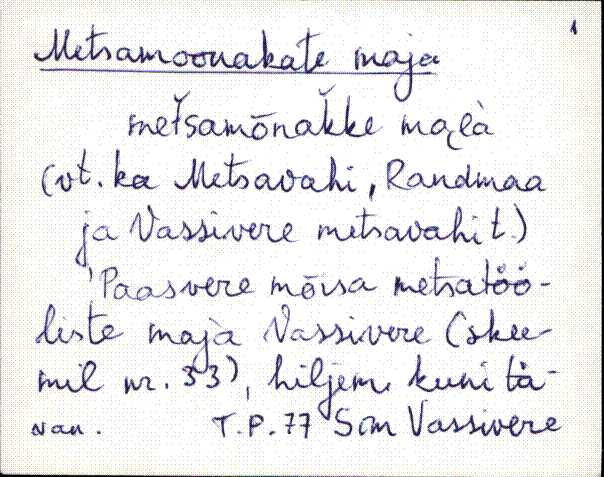 1
Metsamoonakate maja
metšamōnaǩke maja
(vt. ka Metsavahi, Randmaa
ja Vassivere metsavahit.)
Paasvere mõisa metsatöö-
liste maja Vassivere (skee-
mil nr. 33), hiljem, kuni tä-
nan. T.P. 77 Sim Vassivere